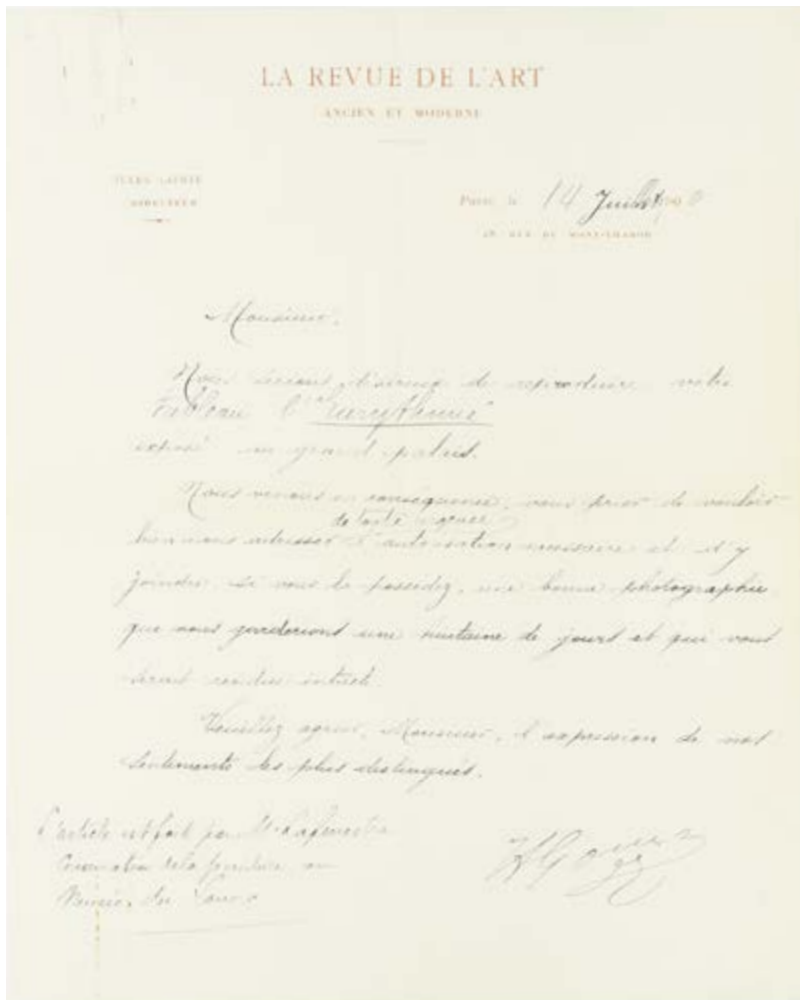 LA REVUE DE L'ART
ANCIEN ET MODERNE
JULES COMTE
DIRECTEUR
Paris, le 14 Juillet 1900
28, RUE DU MONT-THABOR
Monsieur,
Nous serions désireux de reproduire votre
tableau l'"Eurythmie"
exposé au grand palais.
Nous venons en conséquence, vous prier de vouloir
de toute urgence
bien nous adresser l'autorisation nécessaire et d'y
joindre, si vous la possédez, une bonne photographie
que nous garderions une huitaine de jours et qui vous
serait rendue intacte.
Veuillez agréer, Monsieur, l'expression de nos
sentiments les plus distingués.
L'article est fait par M. Lafenestre
Conservateur de la peinture au
Musée du Louvre